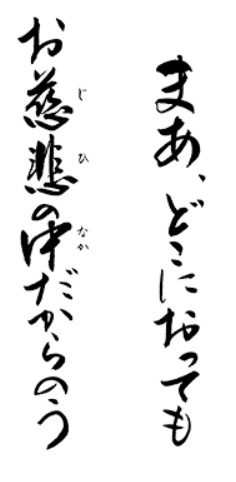 まあ、どこにおっても
お慈悲の中だからのう